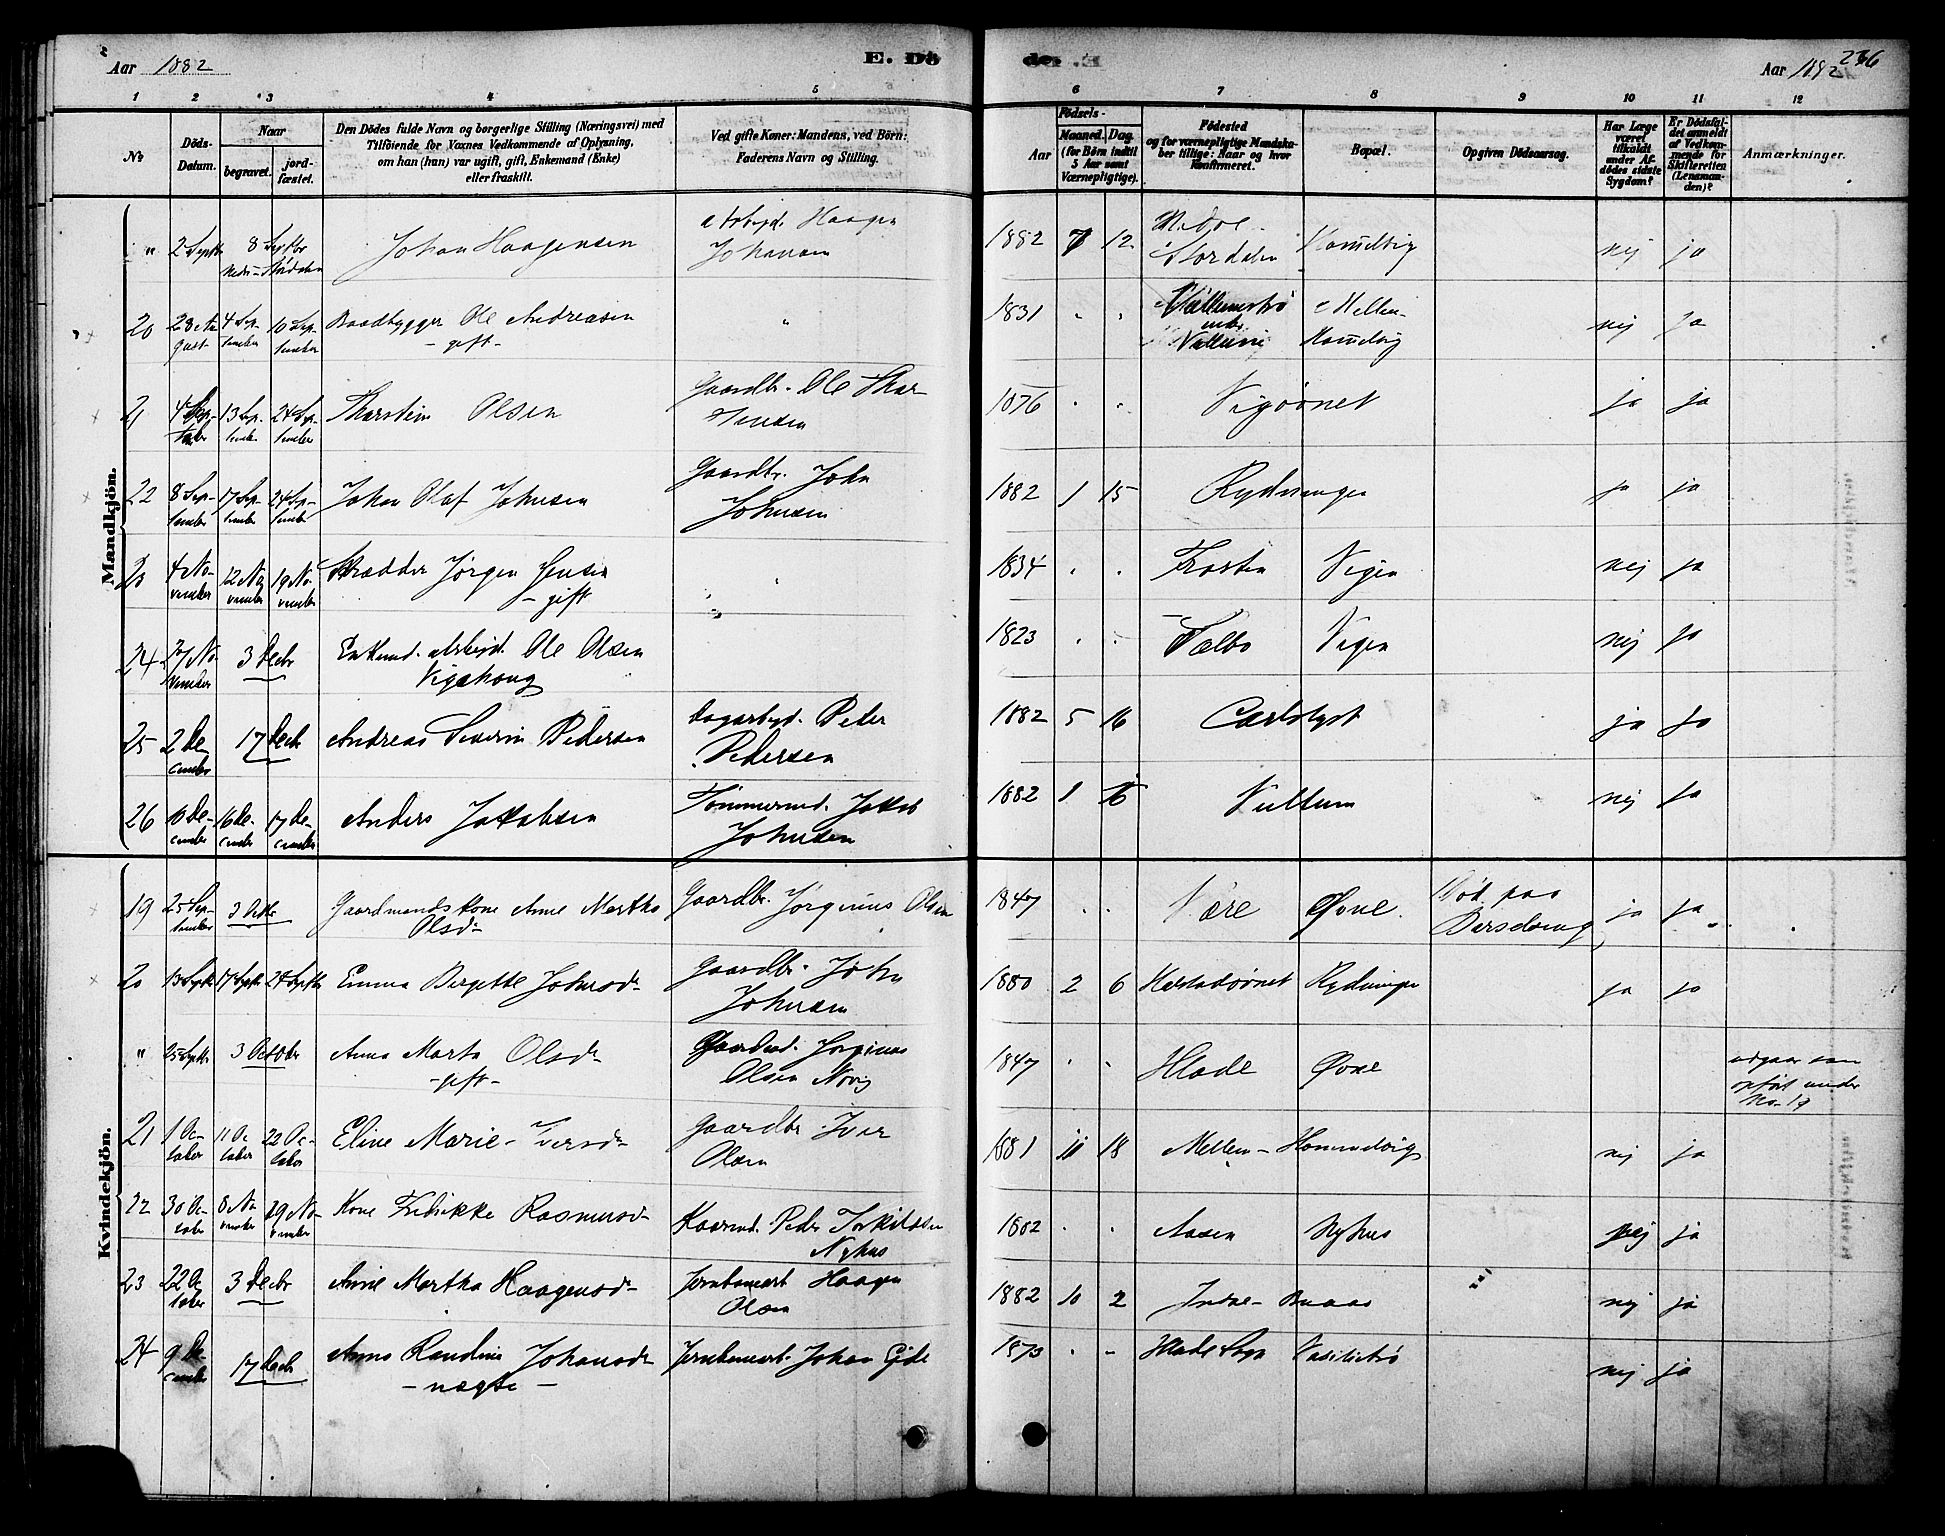 Aar 1882
E. Dö
de. E.
Aar 1882
236
1 2 3 4 5 6 7 8 9 10 11 12
No
Döds-Datum.
Naar
begravet.
jordfæstet.
Den Dödes fulde Navn og borgerlige Stilling (Næringsvei) med
Tilföiende for Voxnes Vedkommende af Oplysning,
om han (hun) var ugift, gift, Enkemand (Enke)
eller fraskilt.
Ved gifte Koner: Mandens, ved Börn:
Faderens Navn og Stilling.
Födsels-
Aar
Maaned. Dag.
(for Börn indtil
5 Aar samt
Værnepligtige).
Födested
og for værnepligtige Mandskaber tillige: Naar og hvor
Konfirmeret.
Bopæl.
Opgiven Dödsaarsag.
Har Læge
været
tilkaldt
under Afdödes sidste
Sygdom?
Er Dödsfaldet anmeldt
af Vedkommende for
Skifteretten
(Lensmanden)?
Anmærkninger.
Mandkjön.
" 2 Septb 8 Septbr Nedre Stördalen Johan Haagensen Arbeid. Haagen Johansen 1882 7 12 Nedre Stordalen nej ja
20 23 August 4 September 10 September Baadbygger Ole Andreasen - gift - " 1831 " " nej ja
21 4 September 13 September 24 September Olsen Gaardbr. Ole 1876 " " Vigöönet ja ja
22 8 September 17 September 24 September Johan Olaf Johnsen Gaardbr. John Johnsen 1882 1 15 Rydninger ja ja
23 4 November 12 November 19 November Skrædder Jørgen Jensen - gift " 1834 " " Frosten Vigen nej ja
24 27 November 3 Decbr Enkemd. arbeid. Ole Olsen Vigehaug 1823 " " Sælbo Vigen nej ja
25 2 December 17 Decb Andreas Severin Pedersen Dagarbejd. Peter Pedersen 1882 5 16 Carlslyst ja ja
26 10 December 16 December 17 December Anders Jakobsen Tömmermd. Jakob Johnsen 1882 1 16 Vullum nej ja
Kvindekjön.
19 25 September 3 Octbr Gaardmandskone Anne Martha Olsd- Gaardbr. Jørginus Olsen 1847 " " Være Øvre Död paa Barselseng ja ja
20 13 Septb 17 Septb 24 Septb Emma Bergette Johnsd- Gaardbr. John Johnsen 1880 2 6 Rydninger ja ja
" 25 Septb 3 October Anna Marta Olsd- - gift - Gaardmd. Jørginus Olsen 1847 " " Hlade Øvre udgaar som opført under No. 19
21 1 October 11 October 22 October Eline Marie Iversd- Gaardbr. Iver Olsen 1881 11 18 Mellem- Hommelvig nej ja
22 30 October 8 November 19 November Kone Fredrikke Rasmusd- Peder Torkildsen Nyhus 1802 " " Aasen Nyhus nej ja
23 22 October 3 Decbr Anne Martha Haagensd- Jernbanearb Haagen Olsen 1882 10 2 Indre- nej ja
24 9 December 17 Decb Anna Randine Johansd- - uægte - Jernbanearb. Johan Gide 1873 " " Hlade Sogn nej ja